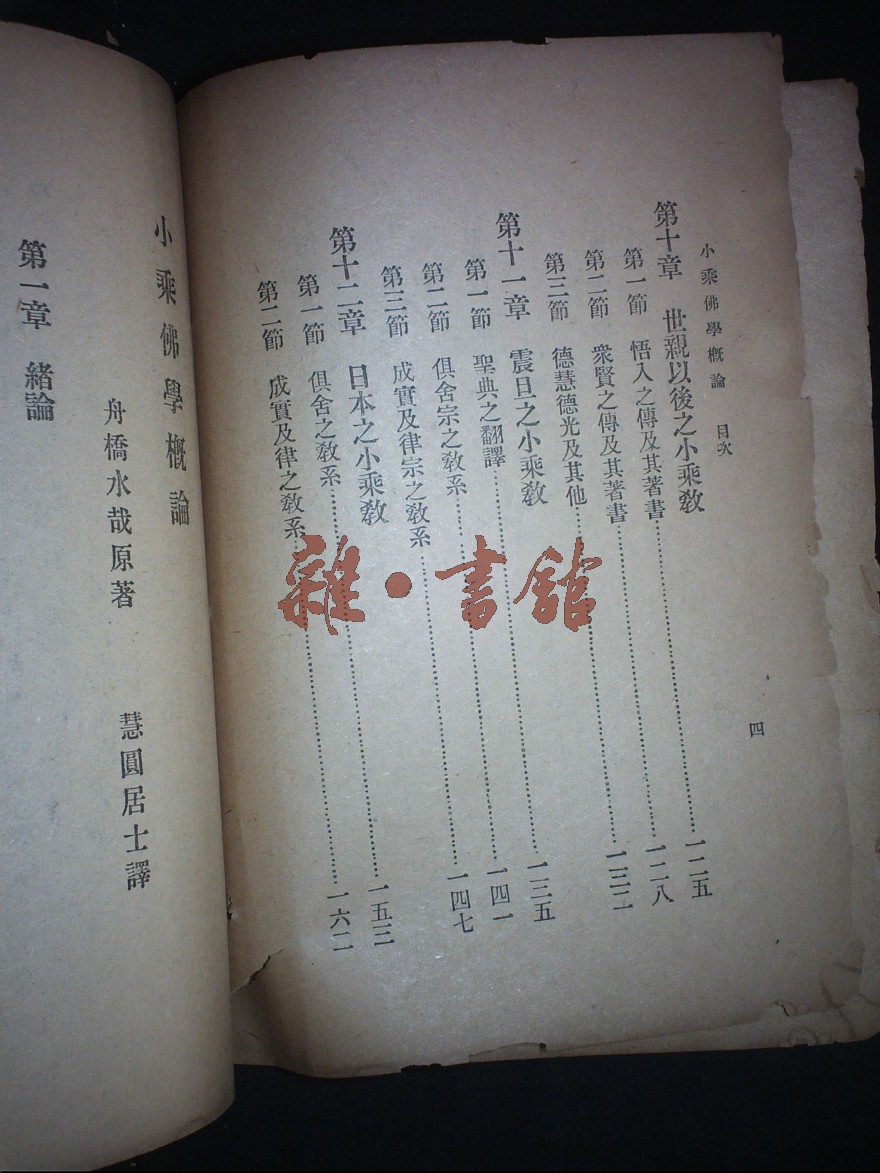 小乘佛學概論　目次
四
第十章　世親以後之小乘教
第一節　悟入之傳及其著書……一二五
第二節　衆賢之傳及其著書……一二八
第三節　德慧德光及其他……一三二
第十一章　震旦之小乘教
第一節　聖典之翻譯……一三五
第二節　俱舍宗之教系……一四一
第三節　成實及律宗之教系……一四七
第十二章　日本之小乘教
第一節　俱舍之教系……一五三
第二節　成實及律之教系……一六二
小乘佛學概論
舟橋水哉原著　慧圓居士譯
第一章　緒論
雜·書館